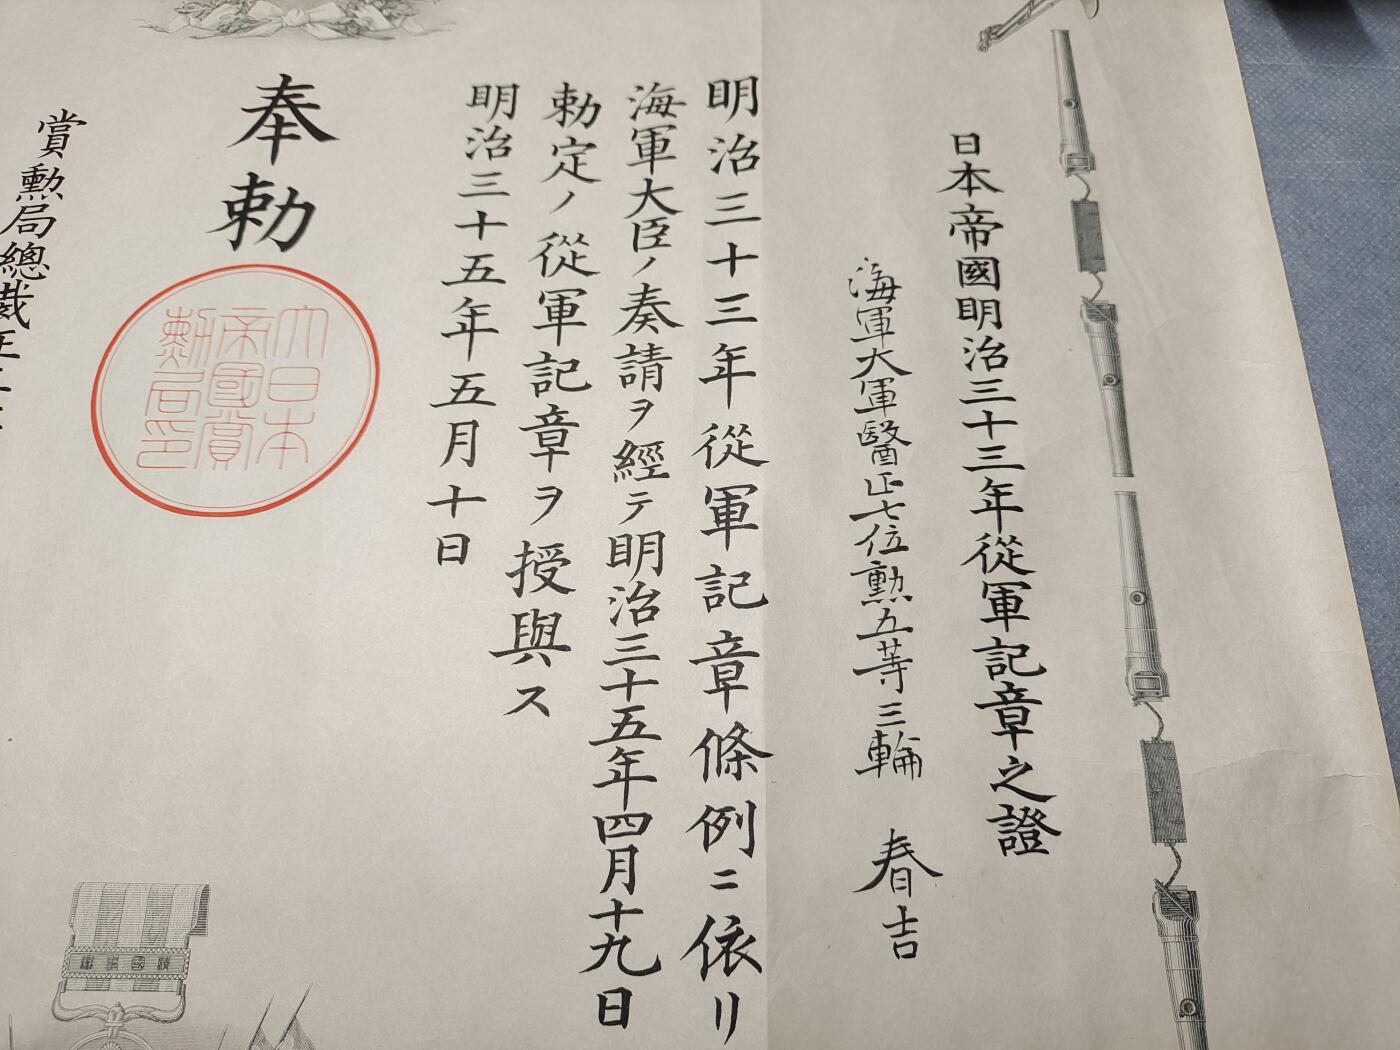 日本帝國明治三十三年從軍記章之證
海軍大軍醫正七位勲五等三輪 春吉
明治三十三年從軍記章條例ニ依リ
海軍大臣ノ奏請ヲ經テ明治三十五年四月十九日
勅定ノ從軍記章ヲ授與ス
明治三十五年五月十日
奉勅
大日本
帝國賞
勲局印
賞勲局總裁正三
清國事變